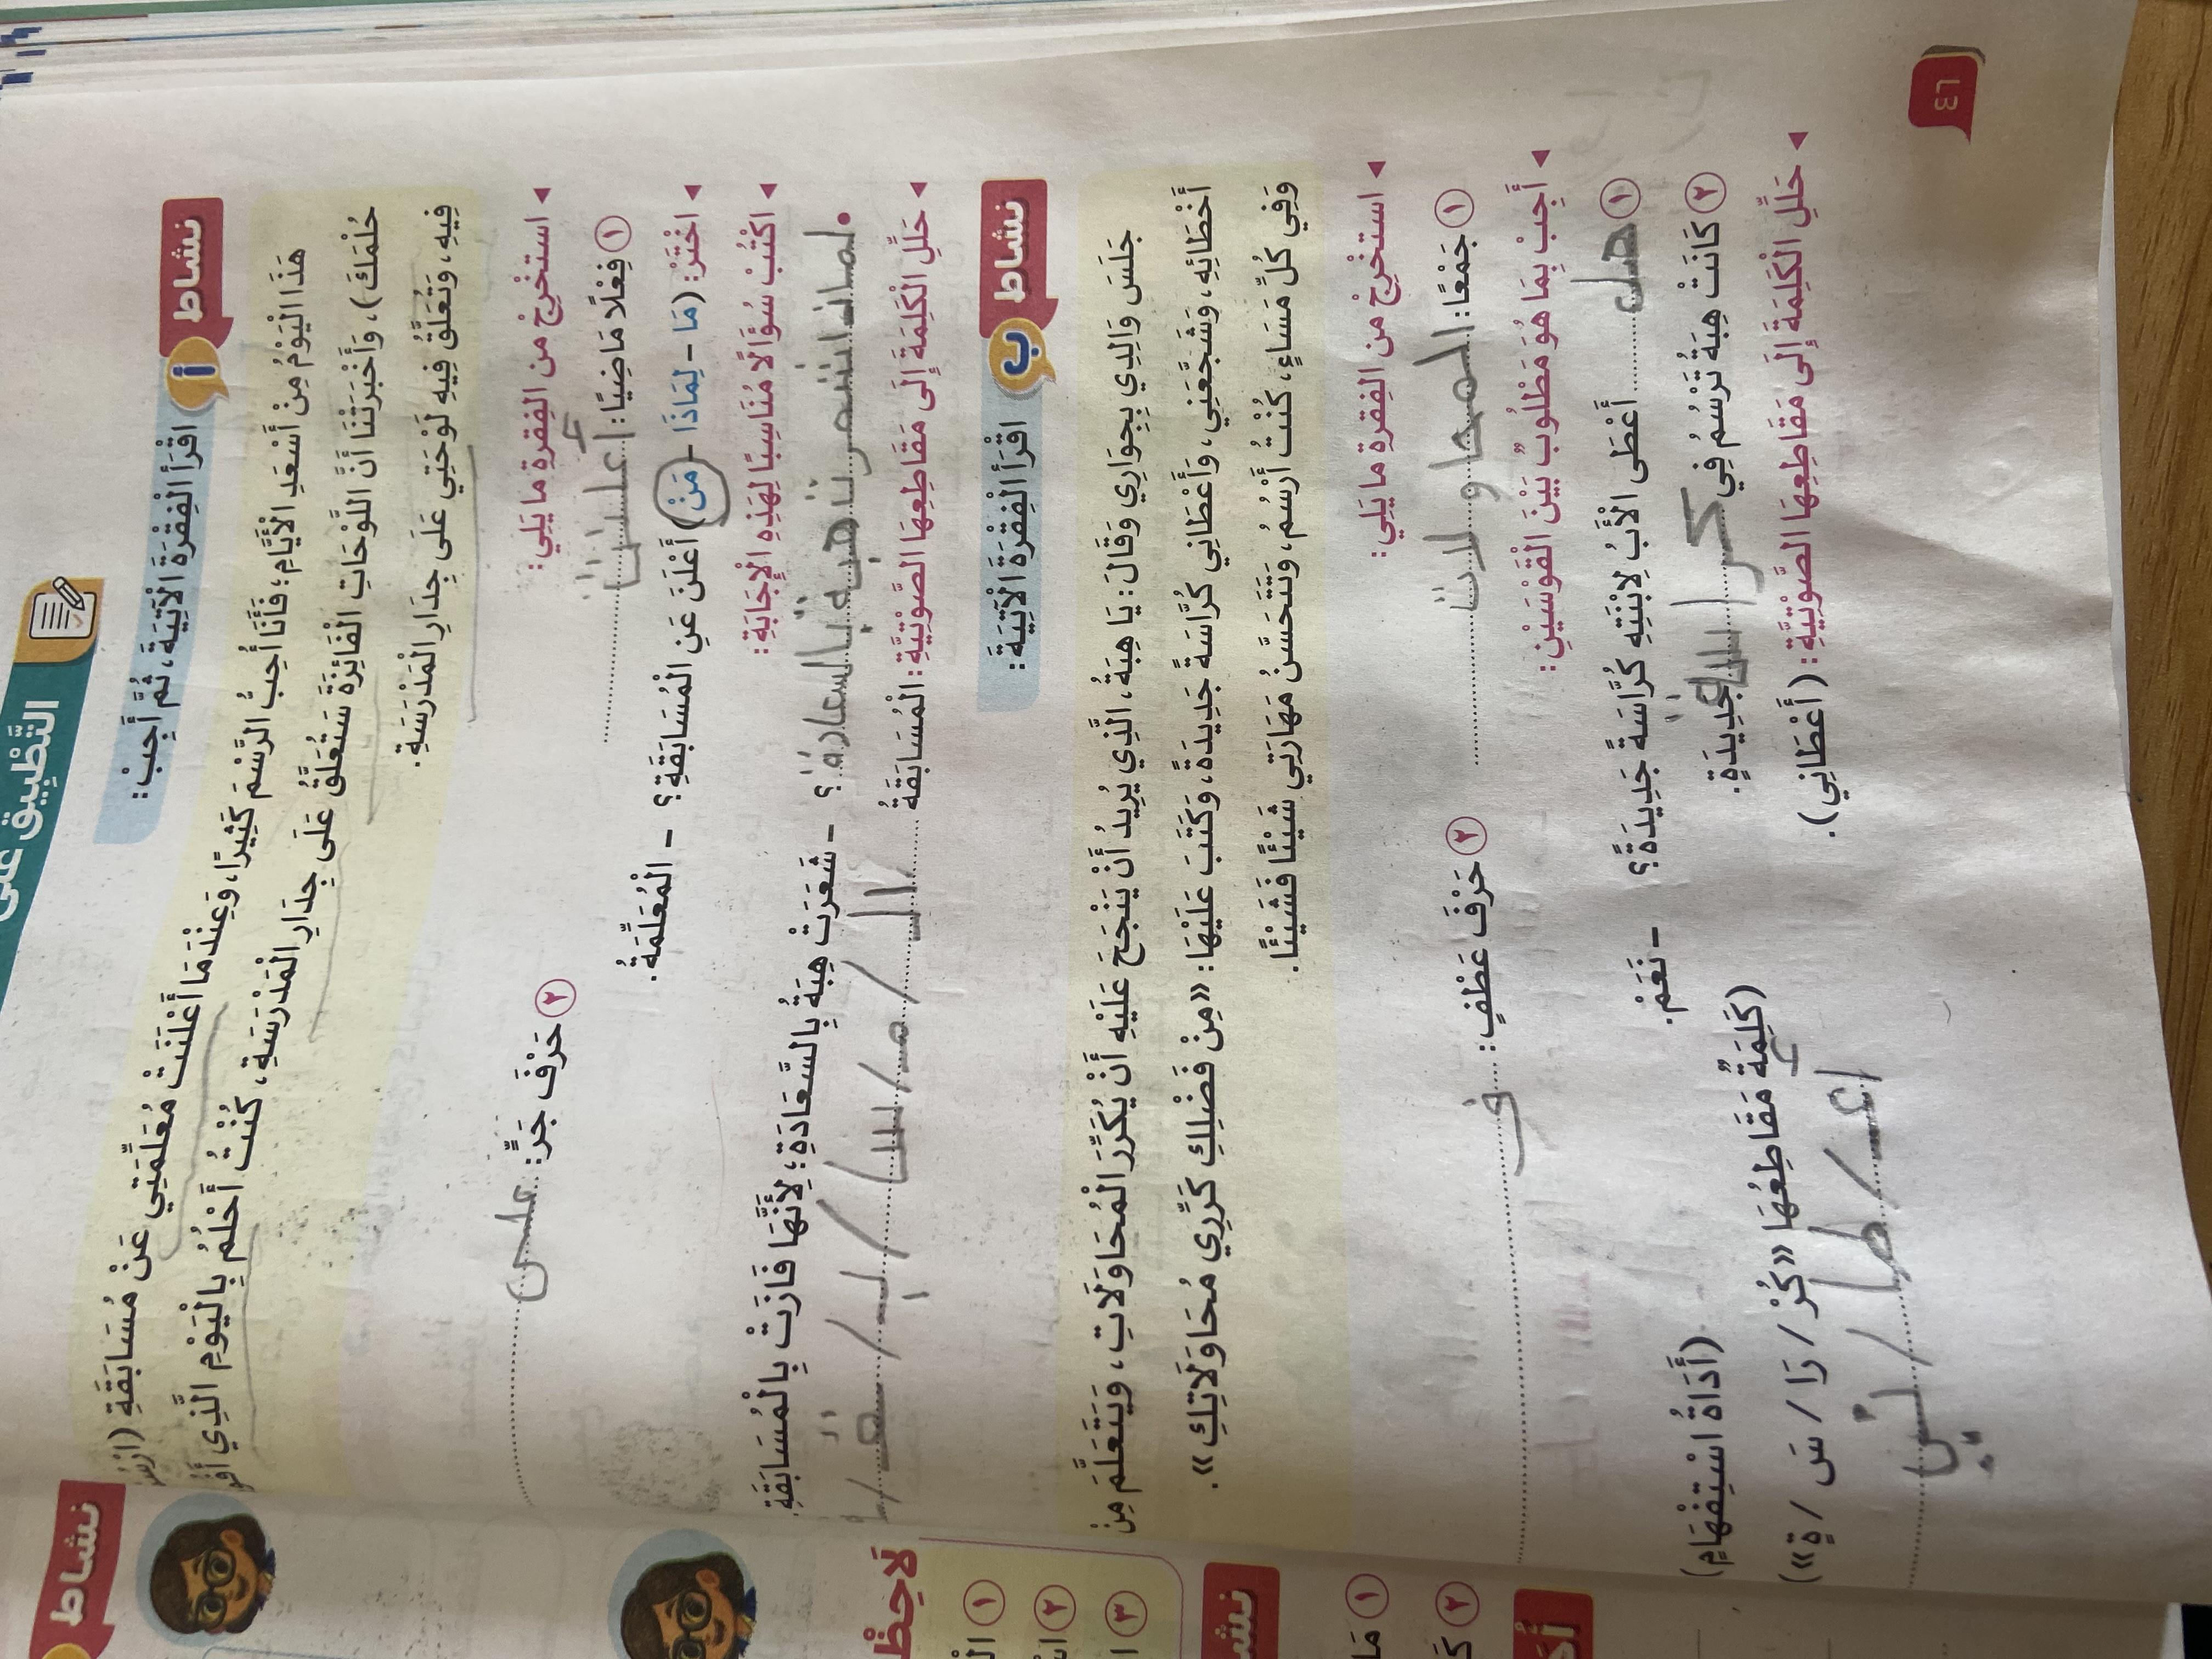 التَّطْبِيق عَلَى
نشاط أ اقْرَأِ الْفِقْرَةَ الْآتِيَةَ، ثُمَّ أَجِبْ:
هَذَا الْيَوْمُ مِنْ أَسْعَدِ الْأَيَّامِ؛ فَأَنَا أُحِبُّ الرَّسْمَ كَثِيرًا، وَعِنْدَمَا أَعْلَنَتْ مُعَلِّمَتِي عَنْ مُسَابَقَةِ (ارْسُمْ
حُلْمَكَ)، وَأَخْبَرَتْنَا أَنَّ اللَّوْحَاتِ الْفَائِزَةَ سَتُعَلَّقُ عَلَى جِدَارِ الْمَدْرَسَةِ، كُنْتُ أَحْلُمُ بِالْيَوْمِ الَّذِي
فِيهِ، وَتُعَلَّقُ فِيهِ لَوْحَتِي عَلَى جِدَارِ الْمَدْرَسَةِ.
◄ استخْرِجْ من الفِقرةِ ما يَلِي:
١ فِعْلًا مَاضِيًا: أعلنت ٢ حَرْفَ جَرٍّ: على
◄ اخْتَرْ: (مَا - لِمَاذَا - مَنْ) أَعْلَنَ عَنِ الْمُسَابَقَةِ؟ - الْمُعَلِّمَةُ.
◄ اكْتُبْ سُؤَالًا مُنَاسِبًا لِهَذِهِ الْإِجَابَةِ:
هبة بالسعادة؟ - شَعَرَتْ هِبَةُ بِالسَّعَادَةِ؛ لِأَنَّهَا فَازَتْ بِالْمُسَابَقَةِ.
◄ حَلِّلِ الْكَلِمَةَ إِلَى مَقَاطِعِهَا الصَّوْتِيَّةِ: الْمُسَابَقَةُ الـ / مـ / سا / بـ / قـ / ـة
نشاط ب اقْرَأِ الْفِقْرَةَ الْآتِيَةَ:
جَلَسَ وَالِدِي بِجِوَارِي وَقَالَ: يَا هِبَةُ، الَّذِي يُرِيدُ أَنْ يَنْجَحَ عَلَيْهِ أَنْ يُكَرِّرَ الْمُحَاوَلَاتِ، وَيَتَعَلَّمَ مِنْ
أَخْطَائِهِ، وَشَجَّعَنِي، وَأَعْطَانِي كُرَّاسَةً جَدِيدَةً، وَكَتَبَ عَلَيْهَا: «مِنْ فَضْلِكِ كَرِّرِي مُحَاوَلَاتِكِ».
وَفِي كُلِّ مَسَاءٍ، كُنْتُ أَرْسُمُ، وَتَتَحَسَّنُ مَهَارَتِي شَيْئًا فَشَيْئًا.
◄ استخْرِجْ من الفِقرةِ ما يَلِي:
١ جَمْعًا: المحاولات ٢ حَرْفَ عَطْفٍ: في
◄ أَجِبْ بِمَا هُوَ مَطْلُوبٌ بَيْنَ الْقَوْسَيْنِ:
١ هل أَعْطَى الْأَبُ لِابْنَتِهِ كُرَّاسَةً جَدِيدَةً؟ - نَعَمْ. (أَدَاةُ اسْتِفْهَامٍ)
٢ كَانَتْ هِبَةُ تَرْسُمُ فِي كراسة جَدِيدَةٍ. (كَلِمَةٌ مَقَاطِعُهَا «كُرْ / رَا / سَ / ةٍ»)
◄ حَلِّلِ الْكَلِمَةَ إِلَى مَقَاطِعِهَا الصَّوْتِيَّةِ: (أَعْطَانِي). اعـ / طا / ني
٤٦
نشاط
لَاحِظْ
١
٢
٣
نشاط
١
٢